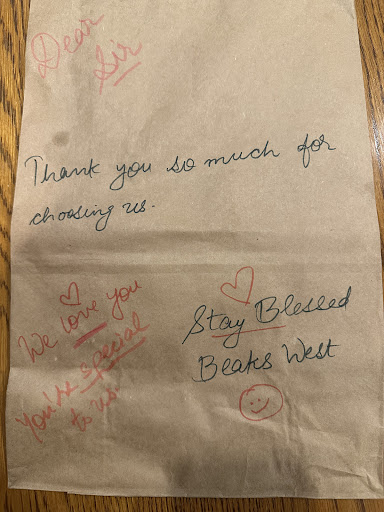 Dear
Sir
Thank you so much for
choosing us.
We love you
You're special
to us
Stay Blessed
Beaks West